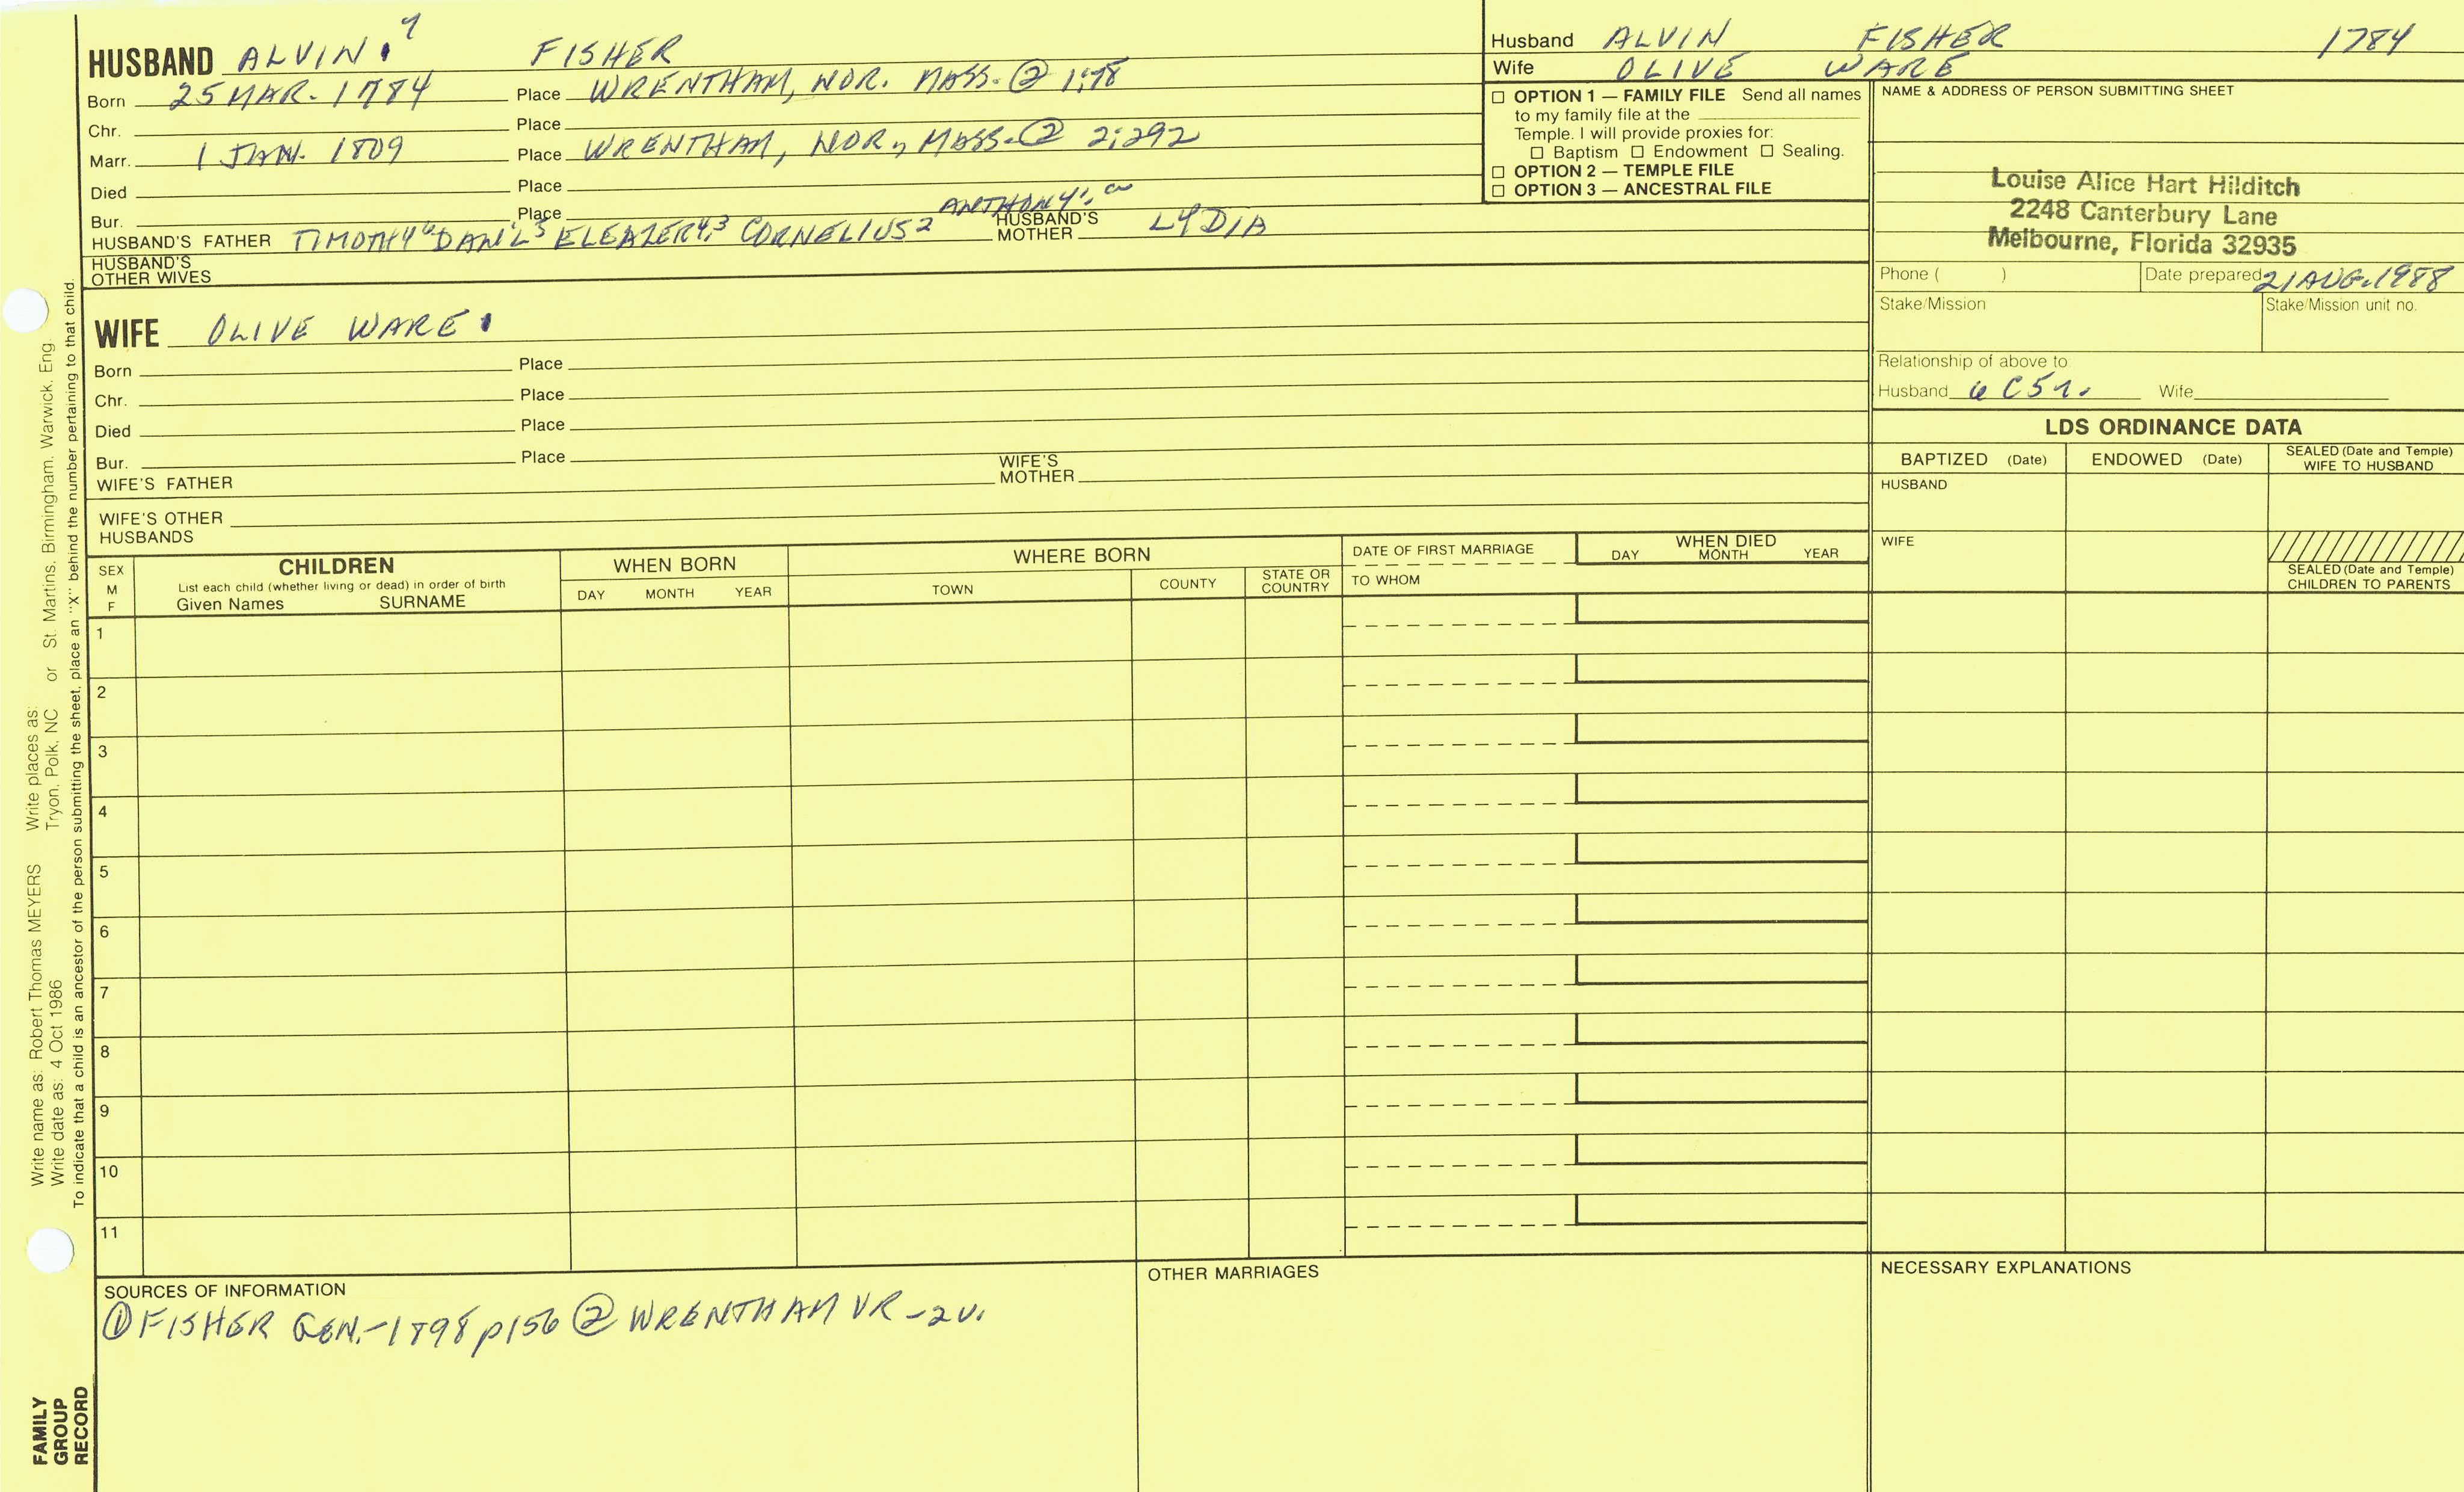 HUSBAND ALVIN. 7 FISHER
Born 25 MAR. 1784 Place WRENTHAM, NOR. MASS. ② 1:98
Chr. Place
Marr. 1 JAN. 1809 Place WRENTHAM, NOR., MASS. ② 2:292
Died Place
Bur. Place
HUSBAND'S FATHER TIMOTHY 6 DAN'L 5 ELEAZER 4,3 CORNELIUS 2 ANTHONY 1, HUSBAND'S MOTHER LYDIA
HUSBAND'S OTHER WIVES
WIFE OLIVE WARE.
Born Place
Chr. Place
Died Place
Bur. Place
WIFE'S FATHER WIFE'S MOTHER
WIFE'S OTHER HUSBANDS
Husband ALVIN FISHER 1784
Wife OLIVE WARE
☐ OPTION 1 — FAMILY FILE Send all names
to my family file at the
Temple. I will provide proxies for:
☐ Baptism ☐ Endowment ☐ Sealing.
☐ OPTION 2 — TEMPLE FILE
☐ OPTION 3 — ANCESTRAL FILE
NAME & ADDRESS OF PERSON SUBMITTING SHEET
Louise Alice Hart Hilditch
2248 Canterbury Lane
Melbourne, Florida 32935
Phone ( ) Date prepared 21 AUG. 1988
Stake/Mission Stake/Mission unit no.
Relationship of above to
Husband 6 C 5 r. Wife
LDS ORDINANCE DATA
BAPTIZED (Date) ENDOWED (Date) SEALED (Date and Temple) WIFE TO HUSBAND
HUSBAND
WIFE
SEALED (Date and Temple)
CHILDREN TO PARENTS
SEX M F
CHILDREN
List each child (whether living or dead) in order of birth
Given Names SURNAME
WHEN BORN
DAY MONTH YEAR
WHERE BORN
TOWN COUNTY STATE OR COUNTRY
DATE OF FIRST MARRIAGE
TO WHOM
WHEN DIED
DAY MONTH YEAR
1
2
3
4
5
6
7
8
9
10
11
SOURCES OF INFORMATION
① FISHER GEN.-1898 p156 ② WRENTHAM VR -2v.
OTHER MARRIAGES
NECESSARY EXPLANATIONS
Write name as: Robert Thomas MEYERS Write places as:
Write date as: 4 Oct 1986 Tryon, Polk, NC or St. Martins, Birmingham, Warwick, Eng.
To indicate that a child is an ancestor of the person submitting the sheet, place an "X" behind the number pertaining to that child.
FAMILY
GROUP
RECORD